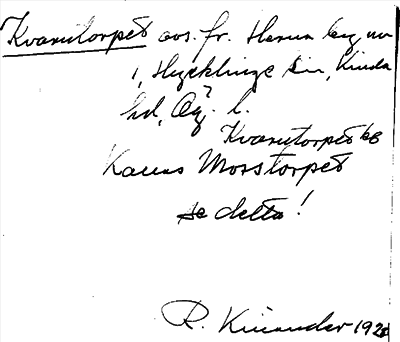 Kvarntorpet avs. fr. Herrabygn
1, Hycklinge sn, Kinda
hd, Ög. l.
Kvarntorpet kb
Kallas Morstorpet
se detta!
R. Kinander 192